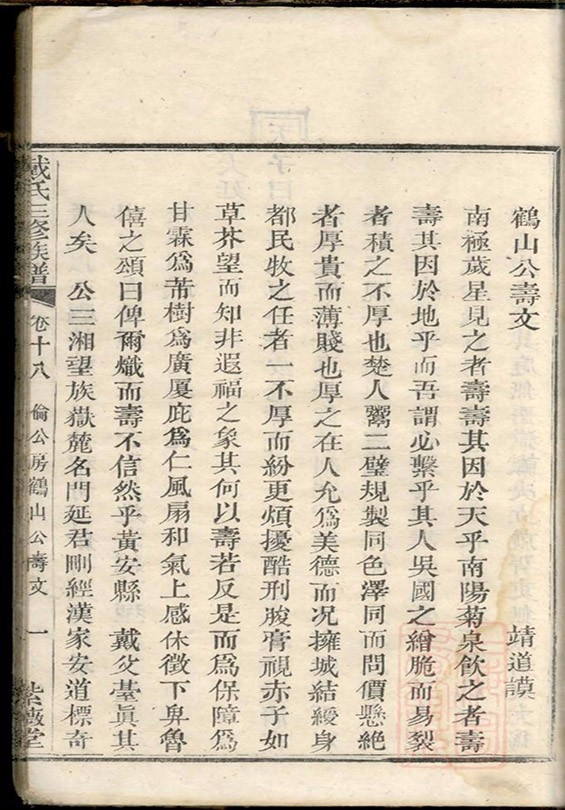 鶴山公壽文 靖道謨
南極歲星見之者壽壽其因於天乎南陽菊泉飲之者壽
壽其因於地乎而吾謂必繫乎其人吳國之繒脆而易裂
者積之不厚也楚人鬻二璧規製同色澤同而問價懸絶
者厚貴而薄賤也厚之在人允爲美德而况擁城結綬身
都民牧之任者一不厚而紛更煩擾酷刑朘膏視赤子如
草芥望而知非遐福之象其何以壽若反是而爲保障爲
甘霖爲芾樹爲廣厦庇爲仁風扇和氣上感休徵下臾魯
僖之頌曰俾爾熾而壽不信然乎黃安縣 戴父臺眞其
人矣 公三湘望族嶽麓名門延君剛經漢家安道標奇
戴氏三修族譜 卷十八 倫公房鶴山公壽文 一 紫薇堂